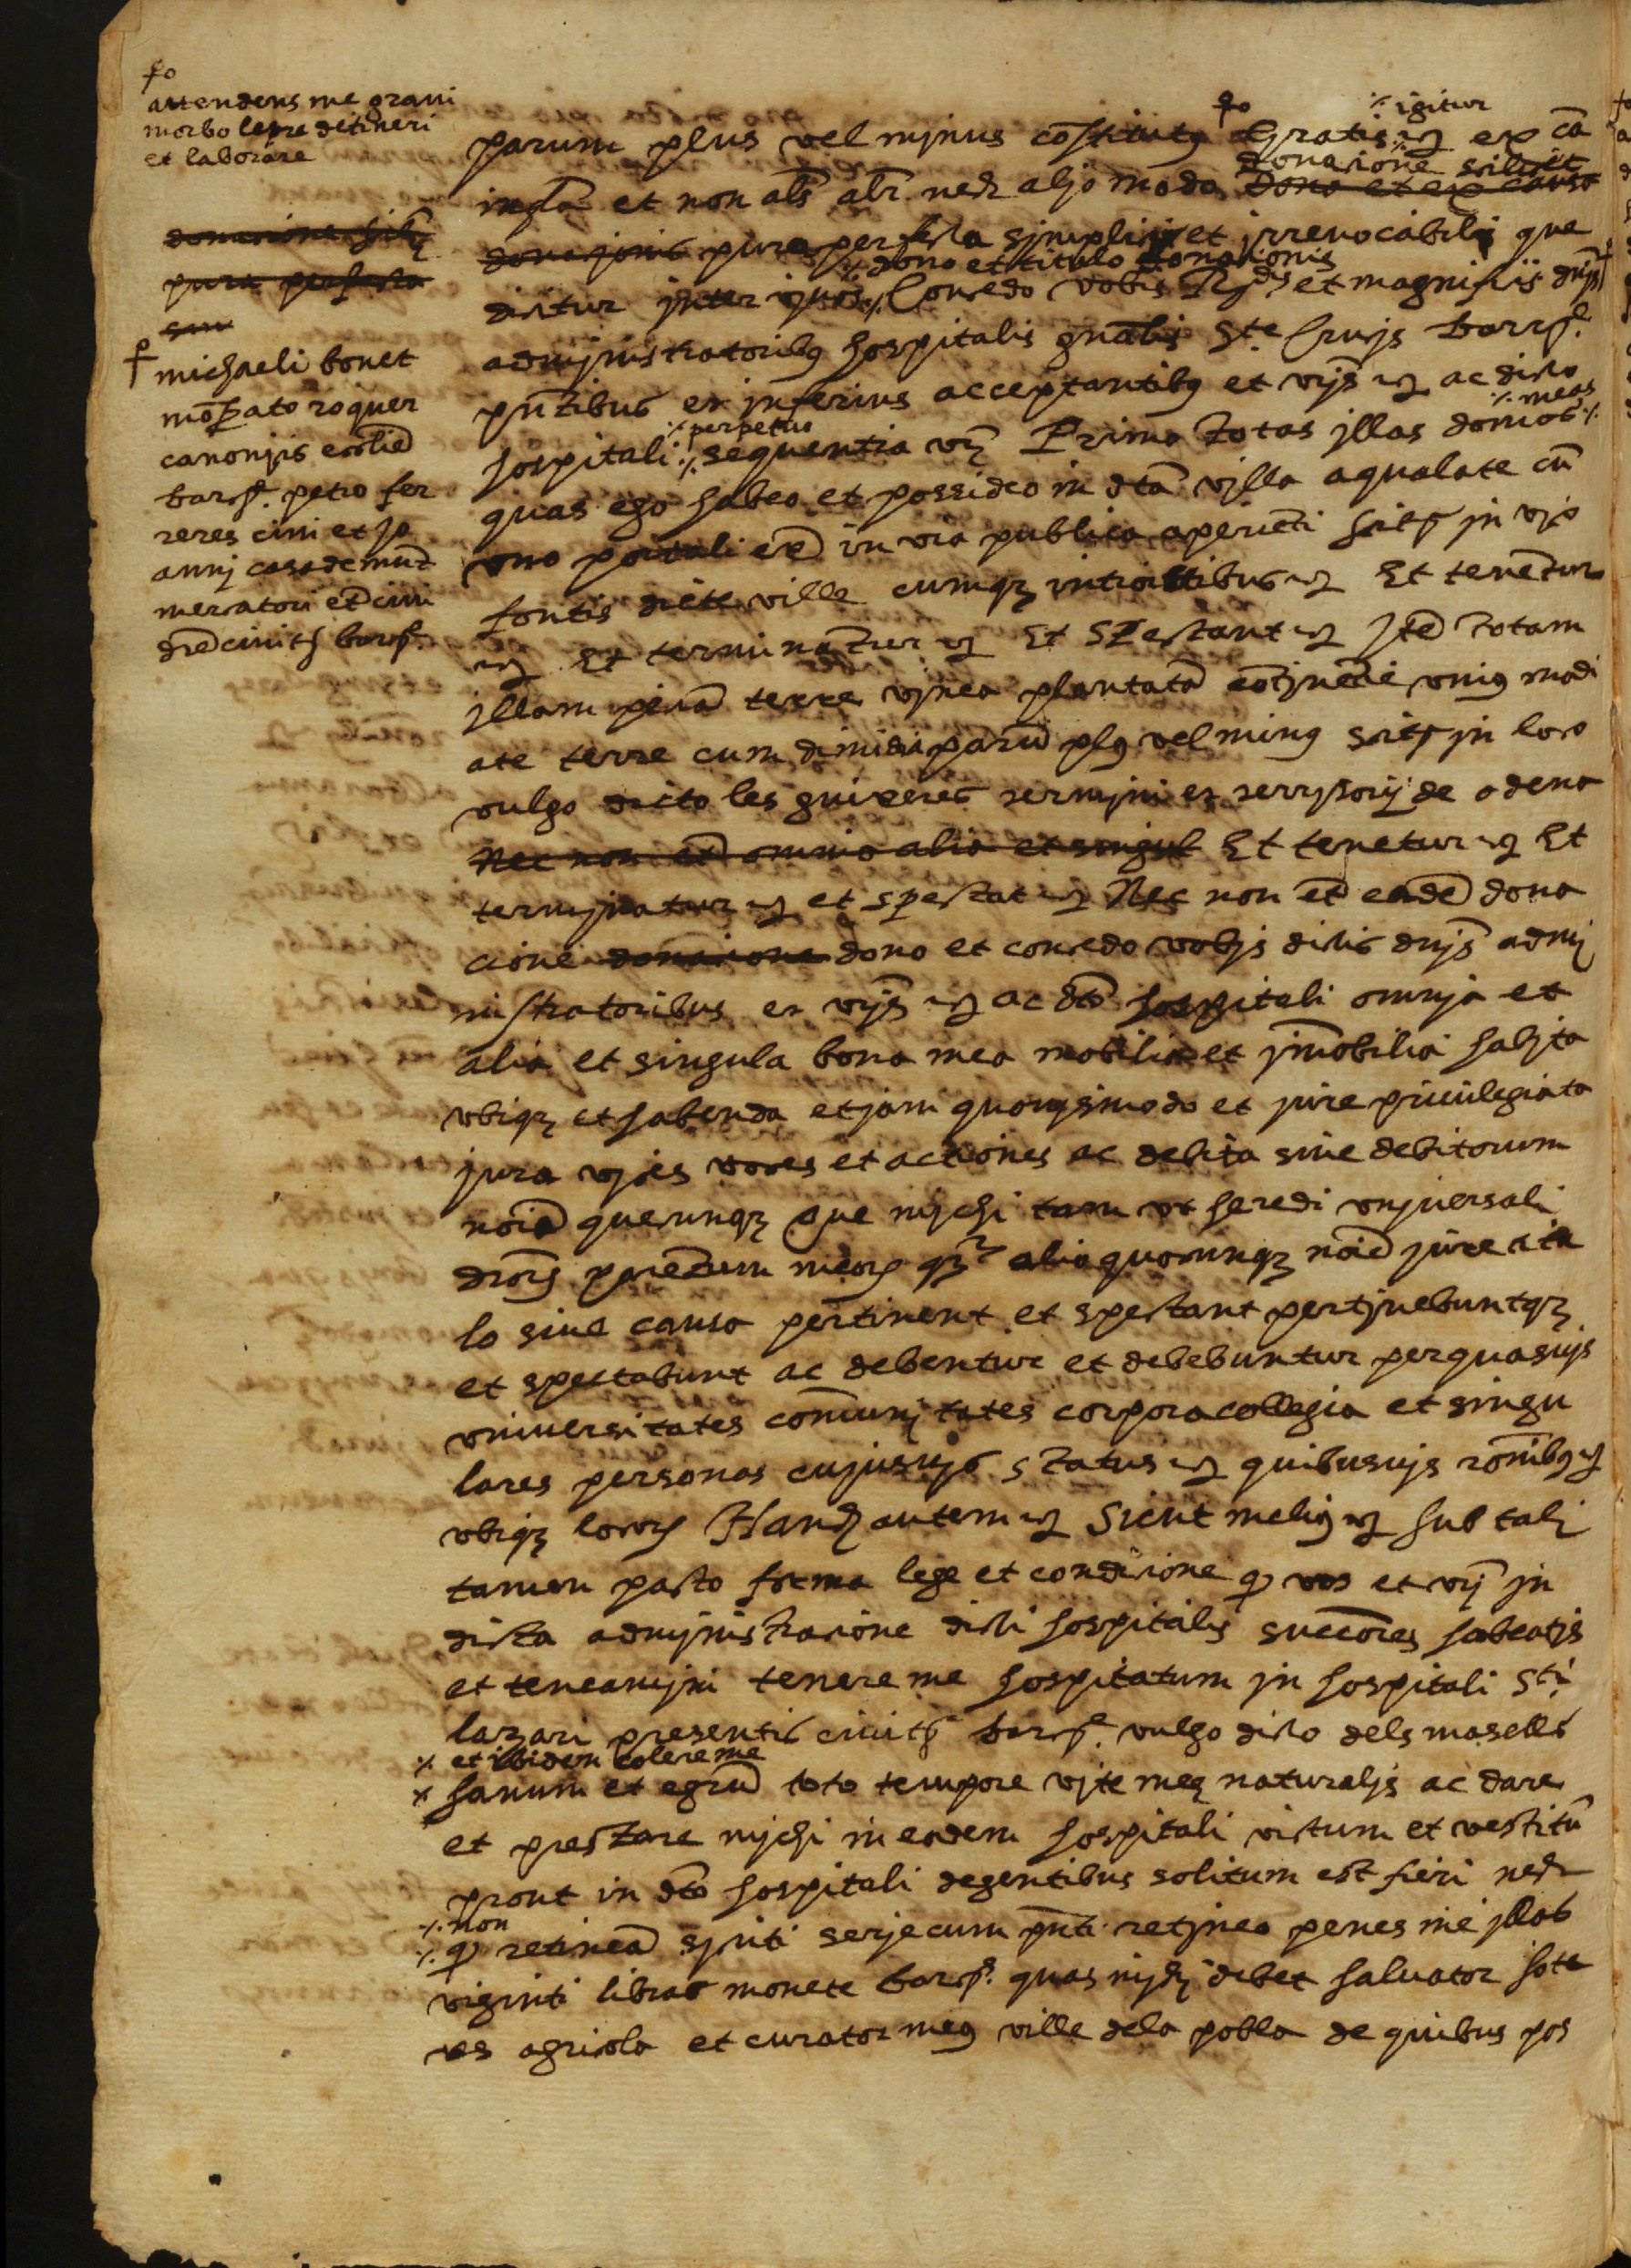 attendens me graui
morbo lepre detineri
et laborare
donacione scilz
pura perfecta
sim
michaeli bonet
canonjis ecclie
barcñ. petro fer
reres ciui et jo
annj casademunt
mercatori et ciui
dicte ciuitis barcñ.
igitur
parum plus vel mjnus constitutus Gratis etc ex ca
donacione scilicet
insta et non als alr nech aljo modo dono et ex causa
donacjonis pura perfecta sjmplici et jrreuocabili que
dono et titulo donacionis
dicitur jnter vjuos Concedo vobis Rdis et magnificis dnjs
admjnistratoribus hospitalis gnalis Ste Crucjs barcñ.
pntibus et jnferius acceptantibus et vrjs etc ac dicto
perpetuo
meas
hospitali sequentia vz Primo totas jllas domos
quas ego habeo et possideo in dta villa aqualate cu
vno portali etc in via publica aperienti scitis in vico
fontis dicte ville cumqz introitibus etc Et tenentur
etc Et terminantur etc Et spectant etc Jte totam
jllam peciã terre vjnea plantatã continente vnius modi
ate terre cum dimidia parũ plus vel minus scitis jn loco
vulgo dicto les guixeres termjni et terrjtorij de odena
Nec non et omnia alia et singul Et tenetur etc Et
termjnatur etc et spectat etc Nec non et eade dona
cione donacione dono et concedo vobjs dictis dnjs admj
nistratoribus et vrjs etc ac dto hospitali omnja et
alia et singula bona mea mobilia et jmobilia habjta
vbiqz et habenda etjam quovjsmodo et jure priuilegiata
jura vjces voces et actiones ac debita siue debitorum
noia quecunqz que mjchi tam vt heredi vnjuersali
dictors parentum meors qz alia quocunqz noie jure titu
lo siue causa pertinent et spectant pertjnebuntqz
et spectabunt ac debentur et debebuntur per quasvjs
vniuersitates comunjtates corpora collegia et singu
lares personas cujusvjs status etc quibusvjs ronibus etc
vbiqz locors Hanc autem etc Sicut melius etc sub talj
tamen pacto forma lege et condicione q vos et vrj jn
dicta admjnistracione dicti hospitalis succores habeatjs
et teneamjni tenere me hospitatum jn hospitali Sti
lazari presentis ciuitis barcñ. vulgo dicto dels masells
et ibidem colere me
sanum et egru toto tempore vjte mee naturaljs ac dare
et prestare mjchi in eodem hospitali victum et vestitu
prout in dto hospitali degentibus solitum est fieri nech
non
q retinea sjuti serje cum pnti retjneo penes me jllas
viginti libras monete barcñ. quas mjchj debet saluator sote
res agricola et curator meus ville dela pobla de quibus pos